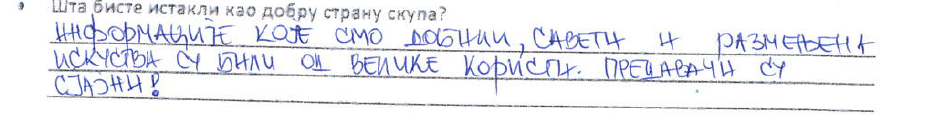 Шта бисте истакли као добру страну скупа?
ИНФОРМАЦИЈЕ КОЈЕ СМО ДОБИЛИ, САВЕТИ И РАЗМЕЊЕНА
ИСКУСТВА СУ БИЛИ ОД ВЕЛИКЕ КОРИСТИ. ПРЕДАВАЧИ СУ
СЈАЈНИ!